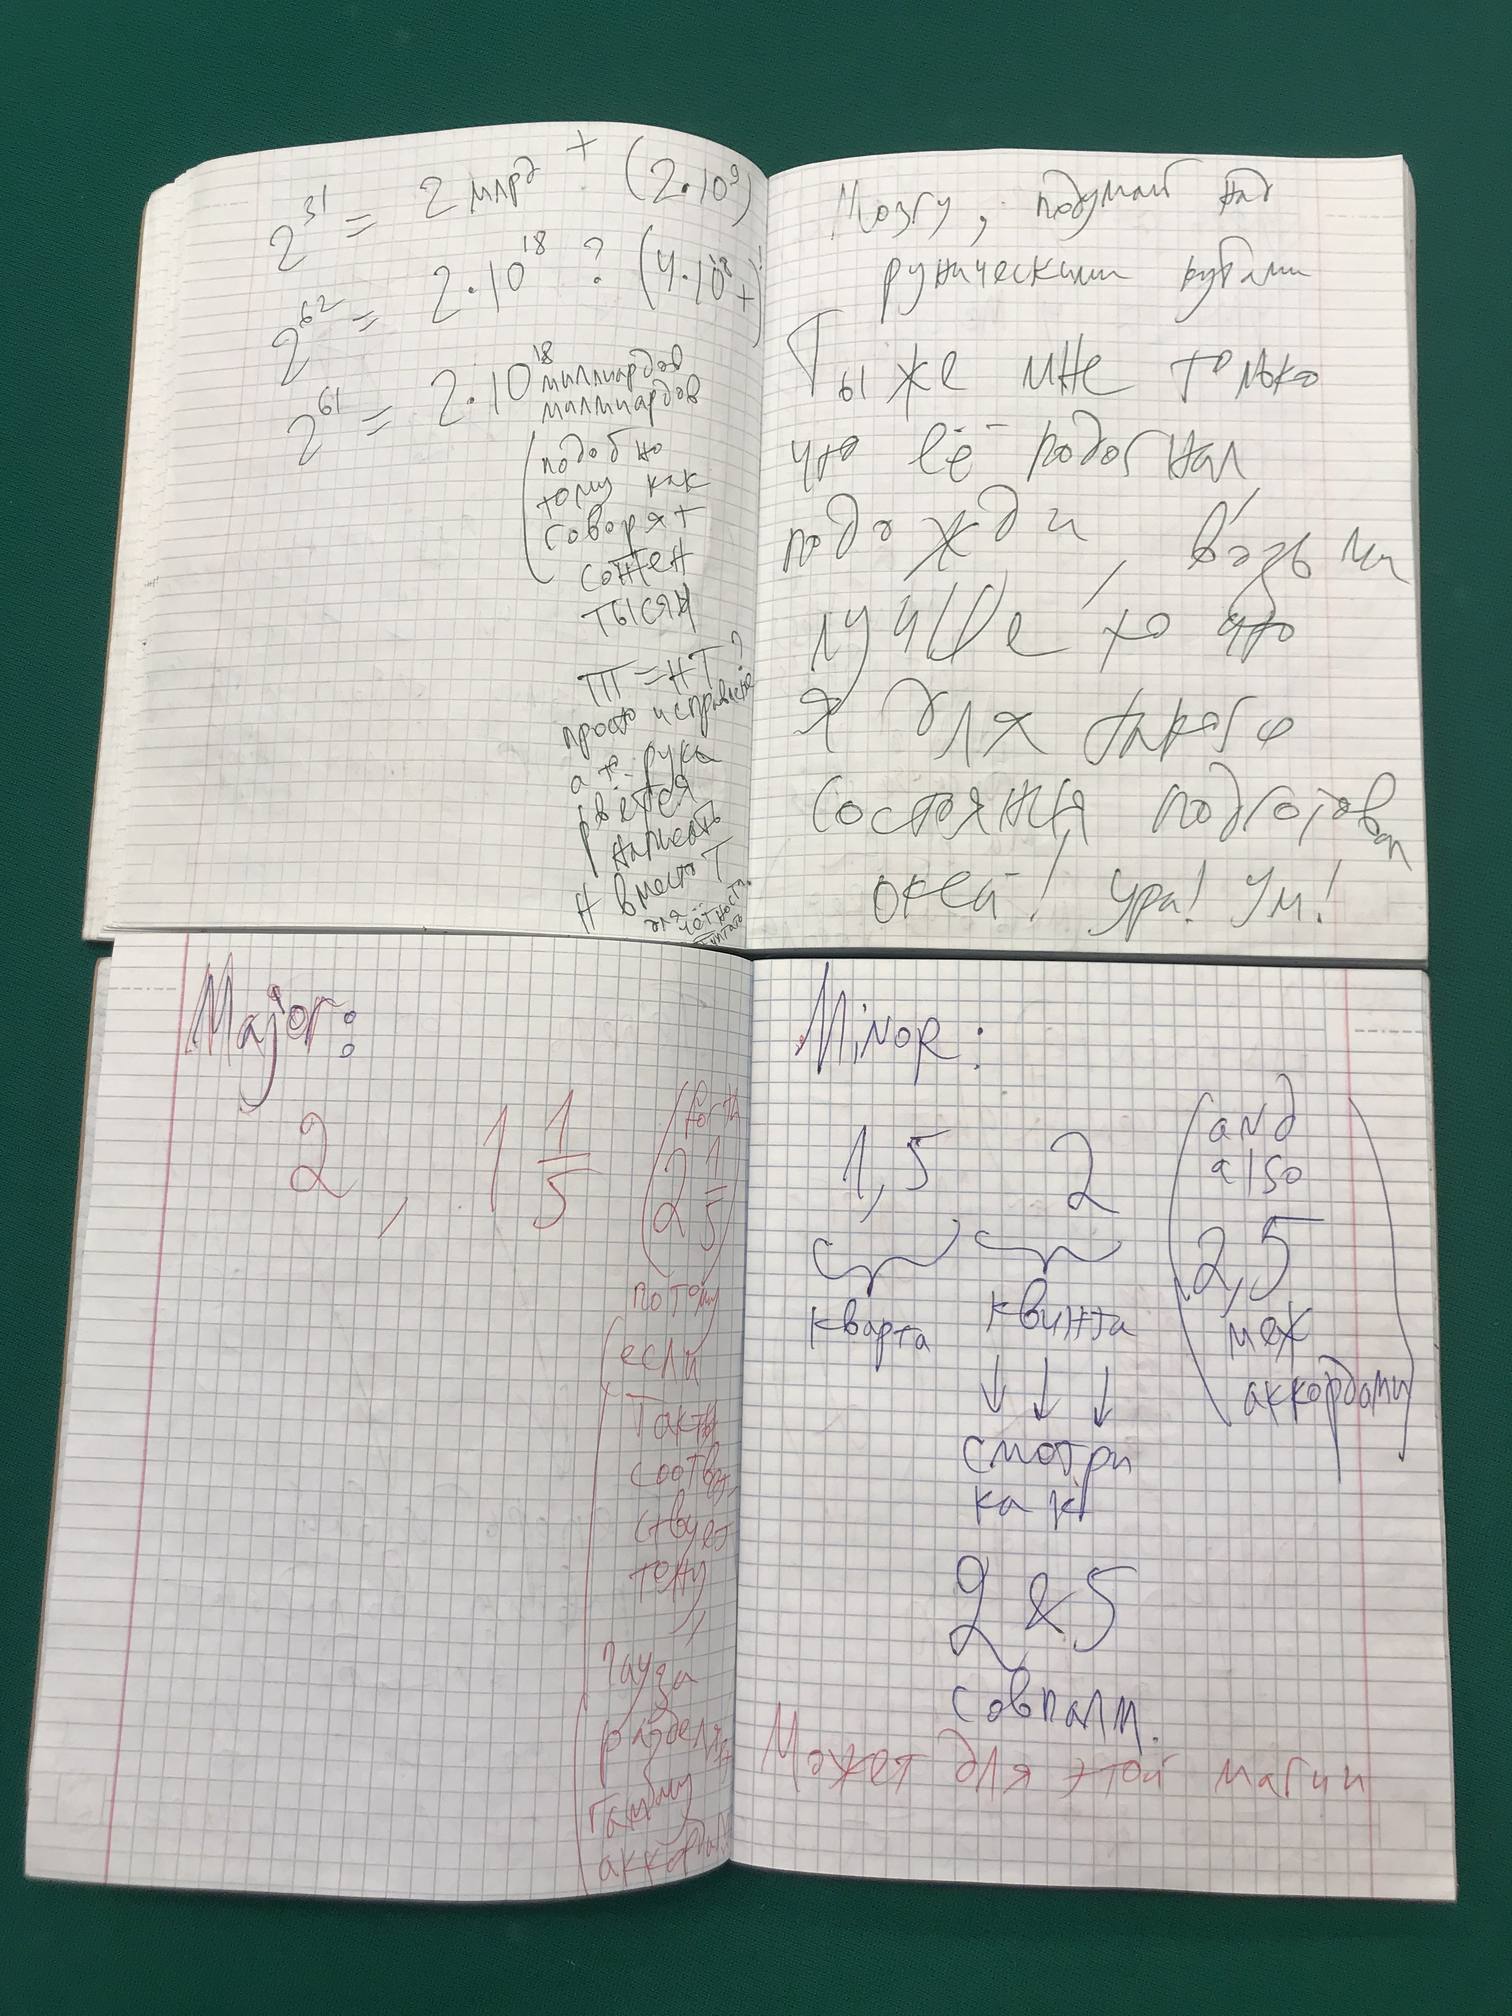 2^31 = 2 млрд + (2·10^9)
2^62 = 2·10^18 ? (4·10^18+)
2^61 = 2·10^18
миллиардов
миллиардов
(подобно
тому как
говорят
сотен
тысяч
ТТ = НТ?
просто исправлено
а то рука
рвётся
написать
Н вместо Т
для
чётности
Мозгу, подумай над
руническими
Ты же мне только
что её подогнал
подожди, возьми
лучше то что
я для такого
состояния подготовил
окей! Ура! Ум!
Major:
2, 1 1/5
(forth
2 1/5)
потому
(если
такты
соответ-
ствует
тону
пауза
разделяет
гамму
аккордам
Minor:
1,5 2
кварта квинта
↓ ↓ ↓
смотри
как
2 & 5
совпали.
(and
also
2,5
меж
аккордами)
Может для этой магии